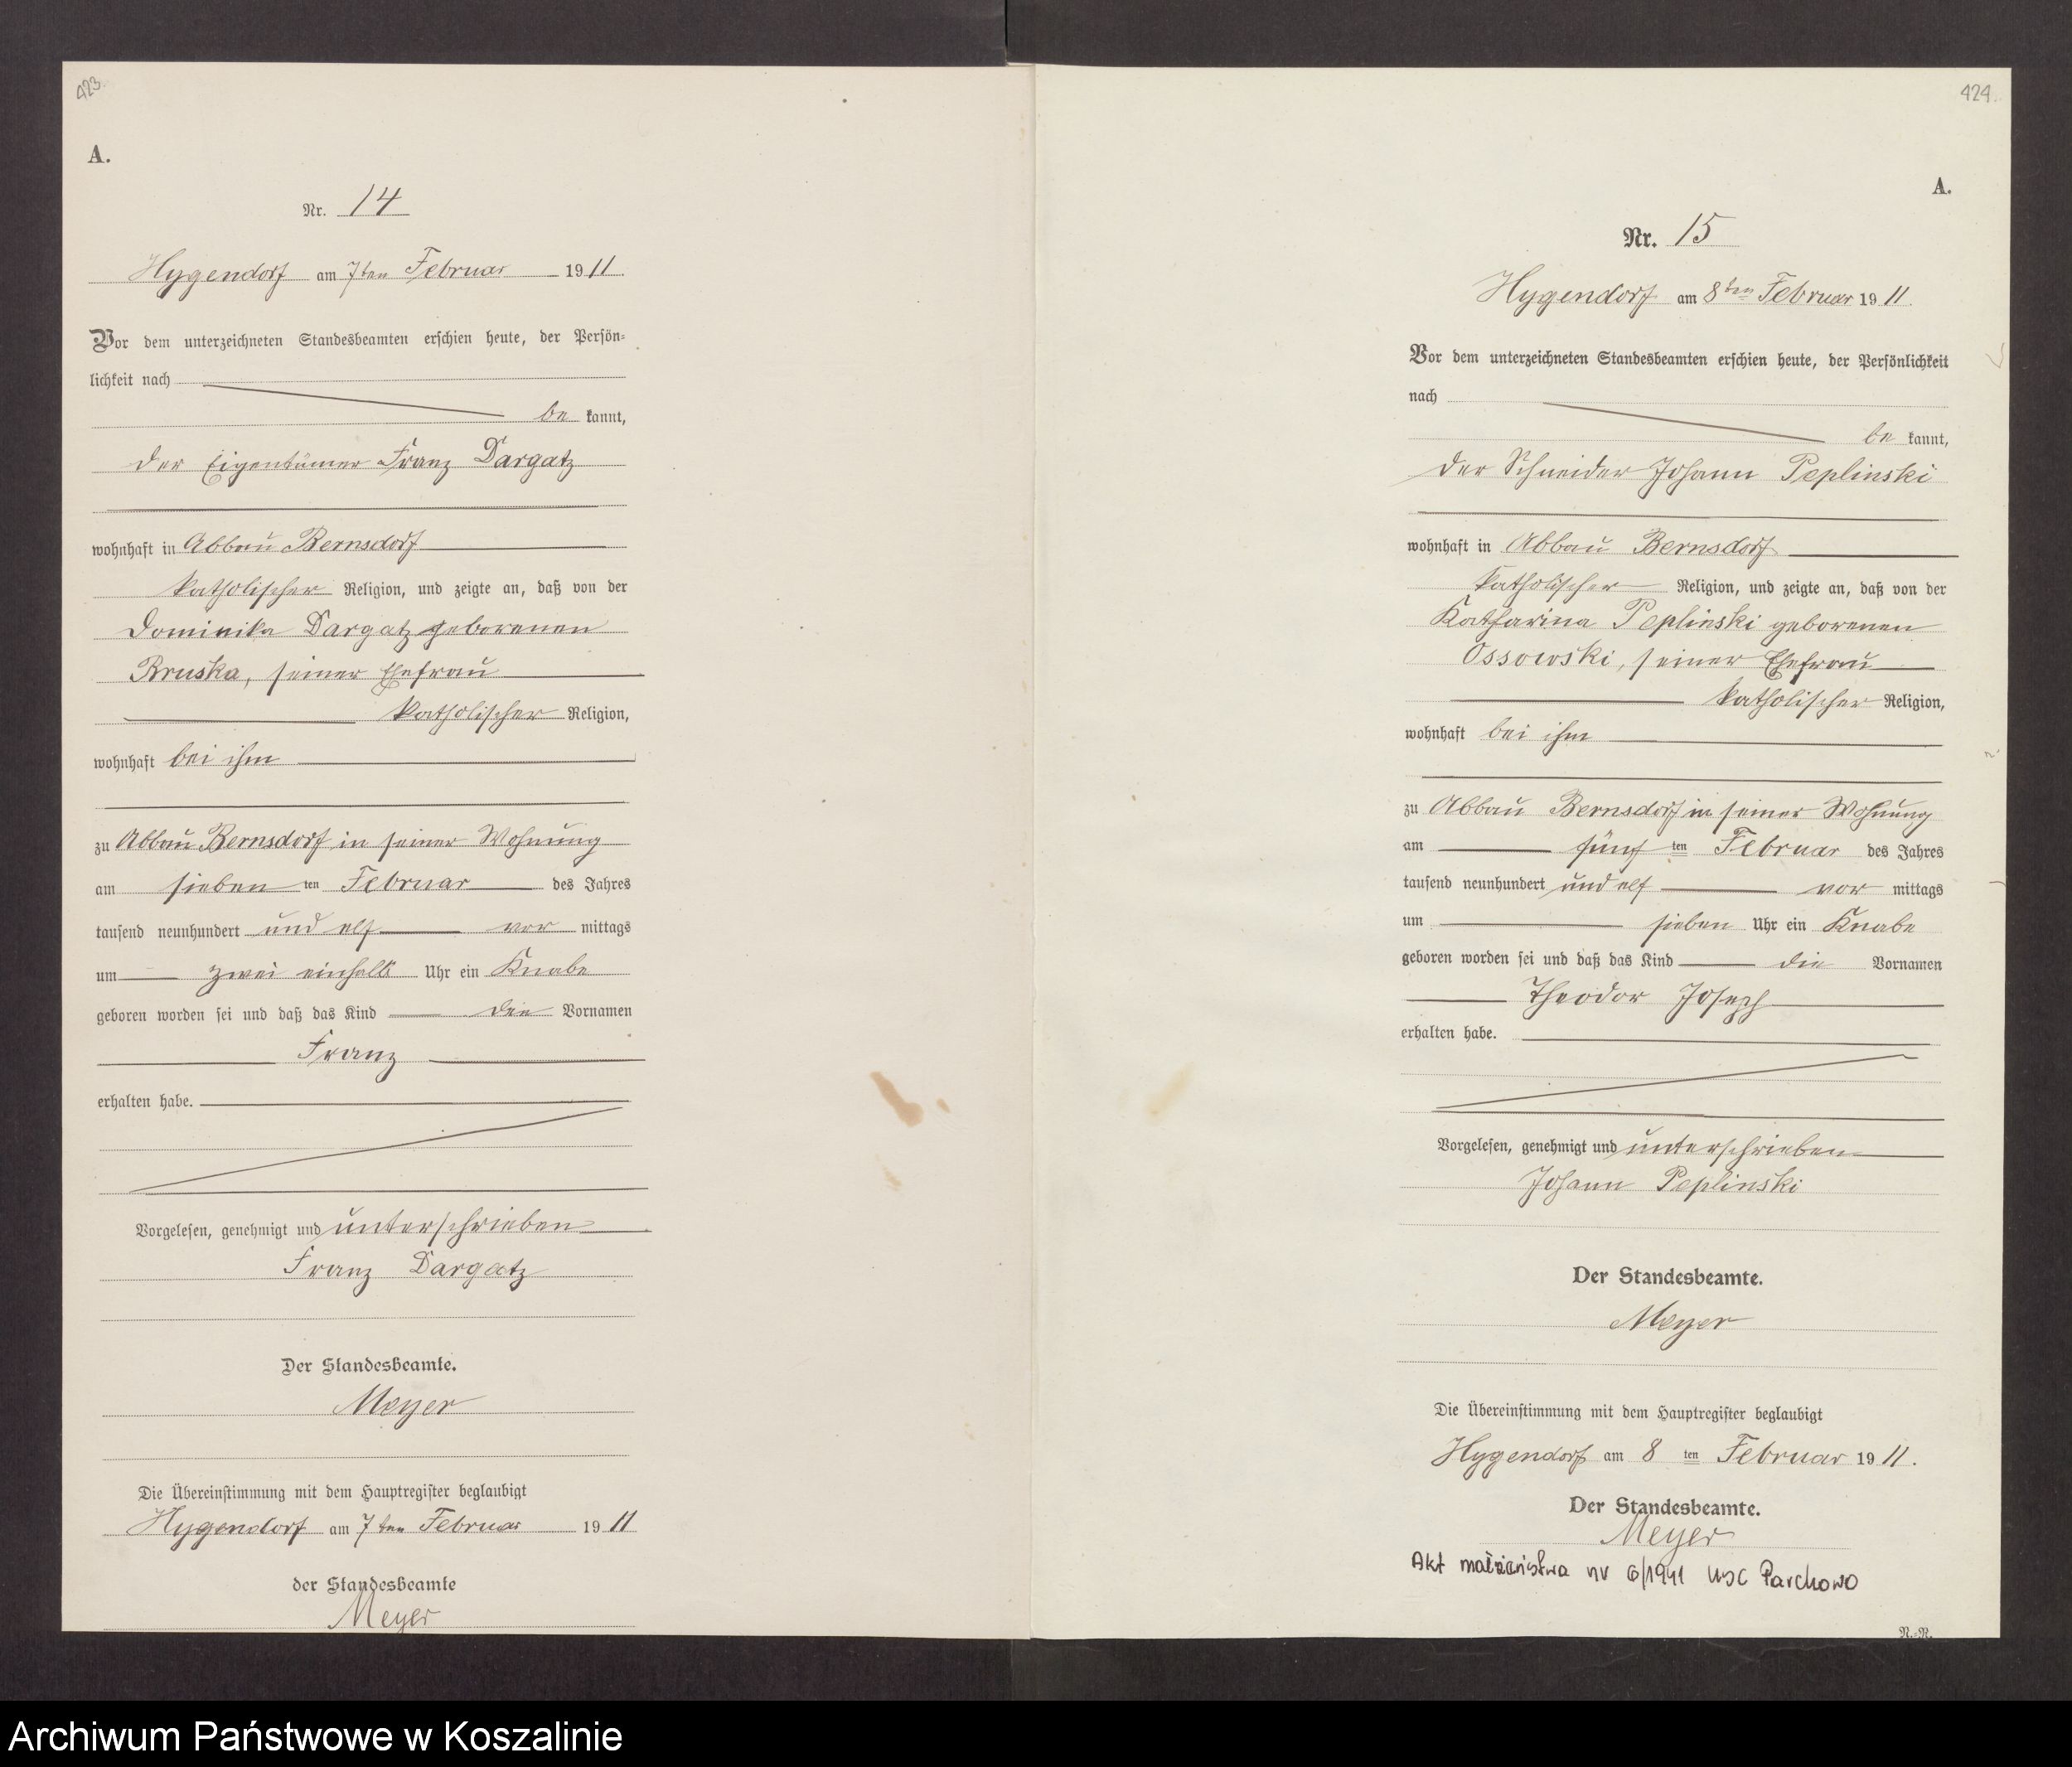 423.
A.
Nr. 14
Hygendorf am 7ten Februar 1911.
Vor dem unterzeichneten Standesbeamten erschien heute, der Persön-
lichkeit nach
be kannt,
der Eigentümer Franz Dargatz
wohnhaft in Abbau Bernsdorf
katholischer Religion, und zeigte an, daß von der
Dominika Dargatz geborenen
Bruska, seiner Ehefrau
katholischer Religion,
wohnhaft bei ihm
zu Abbau Bernsdorf in seiner Wohnung
am sieben ten Februar des Jahres
tausend neunhundert und elf vor mittags
um zwei einhalb Uhr ein Knabe
geboren worden sei und daß das Kind den Vornamen
Franz
erhalten habe.
Vorgelesen, genehmigt und unterschrieben
Franz Dargatz
Der Standesbeamte.
Meyer
Die Übereinstimmung mit dem Hauptregister beglaubigt
Hygendorf am 7ten Februar 1911
der Standesbeamte
Meyer
424.
A.
Nr. 15
Hygendorf am 8ten Februar 1911.
Vor dem unterzeichneten Standesbeamten erschien heute, der Persönlichkeit
nach
be kannt,
der Schneider Johann Peplinski
wohnhaft in Abbau Bernsdorf
katholischer Religion, und zeigte an, daß von der
Katharina Peplinski geborenen
Ossowski, seiner Ehefrau
katholischer Religion,
wohnhaft bei ihm
zu Abbau Bernsdorf in seiner Wohnung
am fünf ten Februar des Jahres
tausend neunhundert und elf vor mittags
um sieben Uhr ein Knabe
geboren worden sei und daß das Kind die Vornamen
Theodor Joseph
erhalten habe.
Vorgelesen, genehmigt und unterschrieben
Johann Peplinski
Der Standesbeamte.
Meyer
Die Übereinstimmung mit dem Hauptregister beglaubigt
Hygendorf am 8 ten Februar 1911.
Der Standesbeamte.
Meyer
Akt małżeństwa nr 6/1941 USC Parchowo
N.-R.
Archiwum Państwowe w Koszalinie